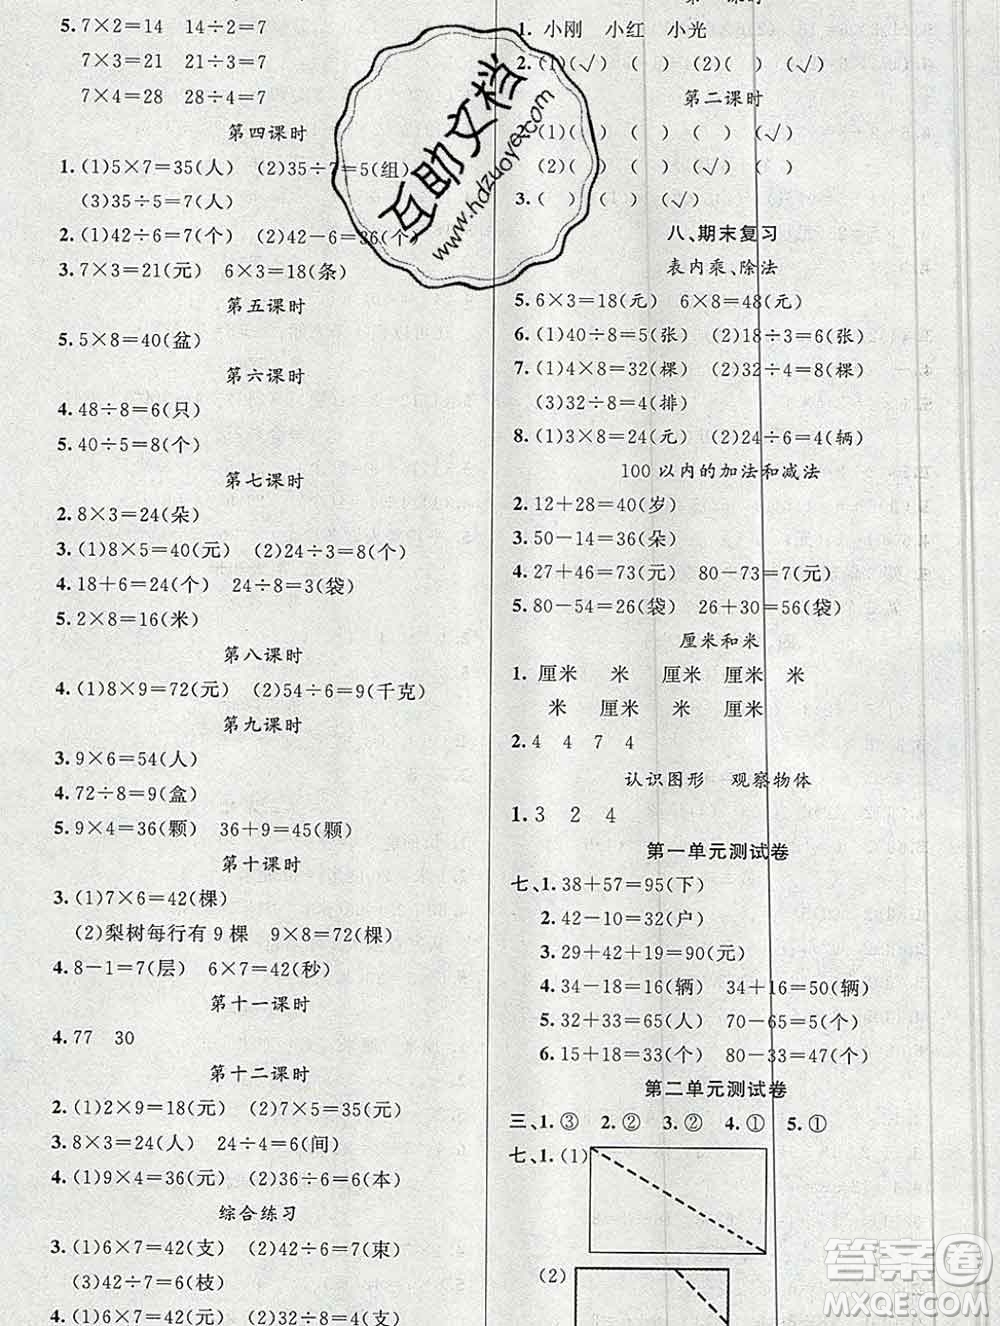 5. 7×2=14 14÷2=7
7×3=21 21÷3=7
7×4=28 28÷4=7
第四课时
1. (1)5×7=35(人) (2)35÷7=5(组)
(3)35÷5=7(人)
2. (1)42÷6=7(个) (2)42-6=36(个)
3. 7×3=21(元) 6×3=18(条)
第五课时
5. 5×8=40(盆)
第六课时
4. 48÷8=6(只)
5. 40÷5=8(个)
第七课时
2. 8×3=24(朵)
3. (1)8×5=40(元) (2)24÷3=8(个)
4. 18+6=24(个) 24÷8=3(袋)
5. 2×8=16(米)
第八课时
4. (1)8×9=72(元) (2)54÷6=9(千克)
第九课时
3. 9×6=54(人)
4. 72÷8=9(盒)
5. 9×4=36(颗) 36+9=45(颗)
第十课时
3. (1)7×6=42(棵)
(2)梨树每行有9棵 9×8=72(棵)
4. 8-1=7(层) 6×7=42(秒)
第十一课时
4. 77 30
第十二课时
2. (1)2×9=18(元) (2)7×5=35(元)
3. 8×3=24(人) 24÷4=6(间)
4. (1)9×4=36(元) (2)36÷6=6(本)
综合练习
3. (1)6×7=42(支) (2)42÷6=7(束)
(3)42÷7=6(枝)
4. (1)48÷6=8(元) (2)24÷8=3(支)
课时
1. 小刚 小红 小光
2. (1)(√) ( ) (2)( ) (√)
第二课时
(1)( ) ( ) ( ) (√)
(2)( ) ( ) (√) ( )
3. ( ) ( ) (√) ( )
八、期末复习
表内乘、除法
5. 6×3=18(元) 6×8=48(元)
6. (1)40÷8=5(张) (2)18÷3=6(张)
7. (1)4×8=32(棵) (2)32÷4=8(棵)
(3)32÷8=4(排)
8. (1)3×8=24(元) (2)24÷6=4(辆)
100以内的加法和减法
2. 12+28=40(岁)
3. 50-14=36(朵)
4. 27+46=73(元) 80-73=7(元)
5. 80-54=26(袋) 26+30=56(袋)
厘米和米
1. 厘米 米 厘米 厘米 米
米 厘米 米 厘米
2. 4 4 7 4
认识图形 观察物体
1. 3 2 4
第一单元测试卷
七、1. 38+57=95(下)
2. 42-10=32(户)
3. 29+42+19=90(元)
4. 34-18=16(辆) 34+16=50(辆)
5. 32+33=65(人) 70-65=5(个)
6. 15+18=33(个) 80-33=47(个)
第二单元测试卷
三、1. ③ 2. ② 3. ② 4. ① 5. ①
七、1. (1)
(2)
互助文档
www.hdzuoye.com
答案圈
MXQE.COM